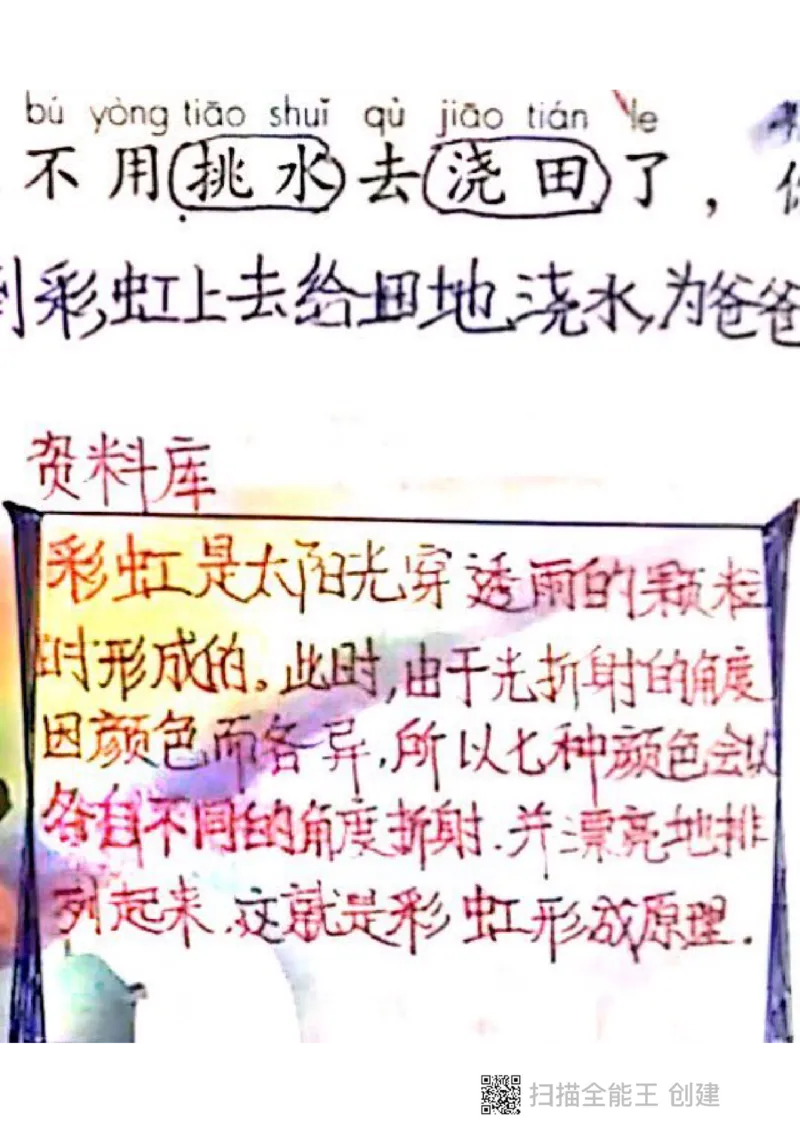 bú yòng tiāo shuǐ qù jiāo tián le
不用挑水去浇田了，
到彩虹上去给田地浇水,为爸爸
资料库
彩虹是太阳光穿透雨的颗粒
时形成的。此时,由于光折射的角度
因颜色而各异,所以七种颜色会以
各自不同的角度折射.并漂亮地排
列起来.这就是彩虹形成原理.
扫描全能王 创建